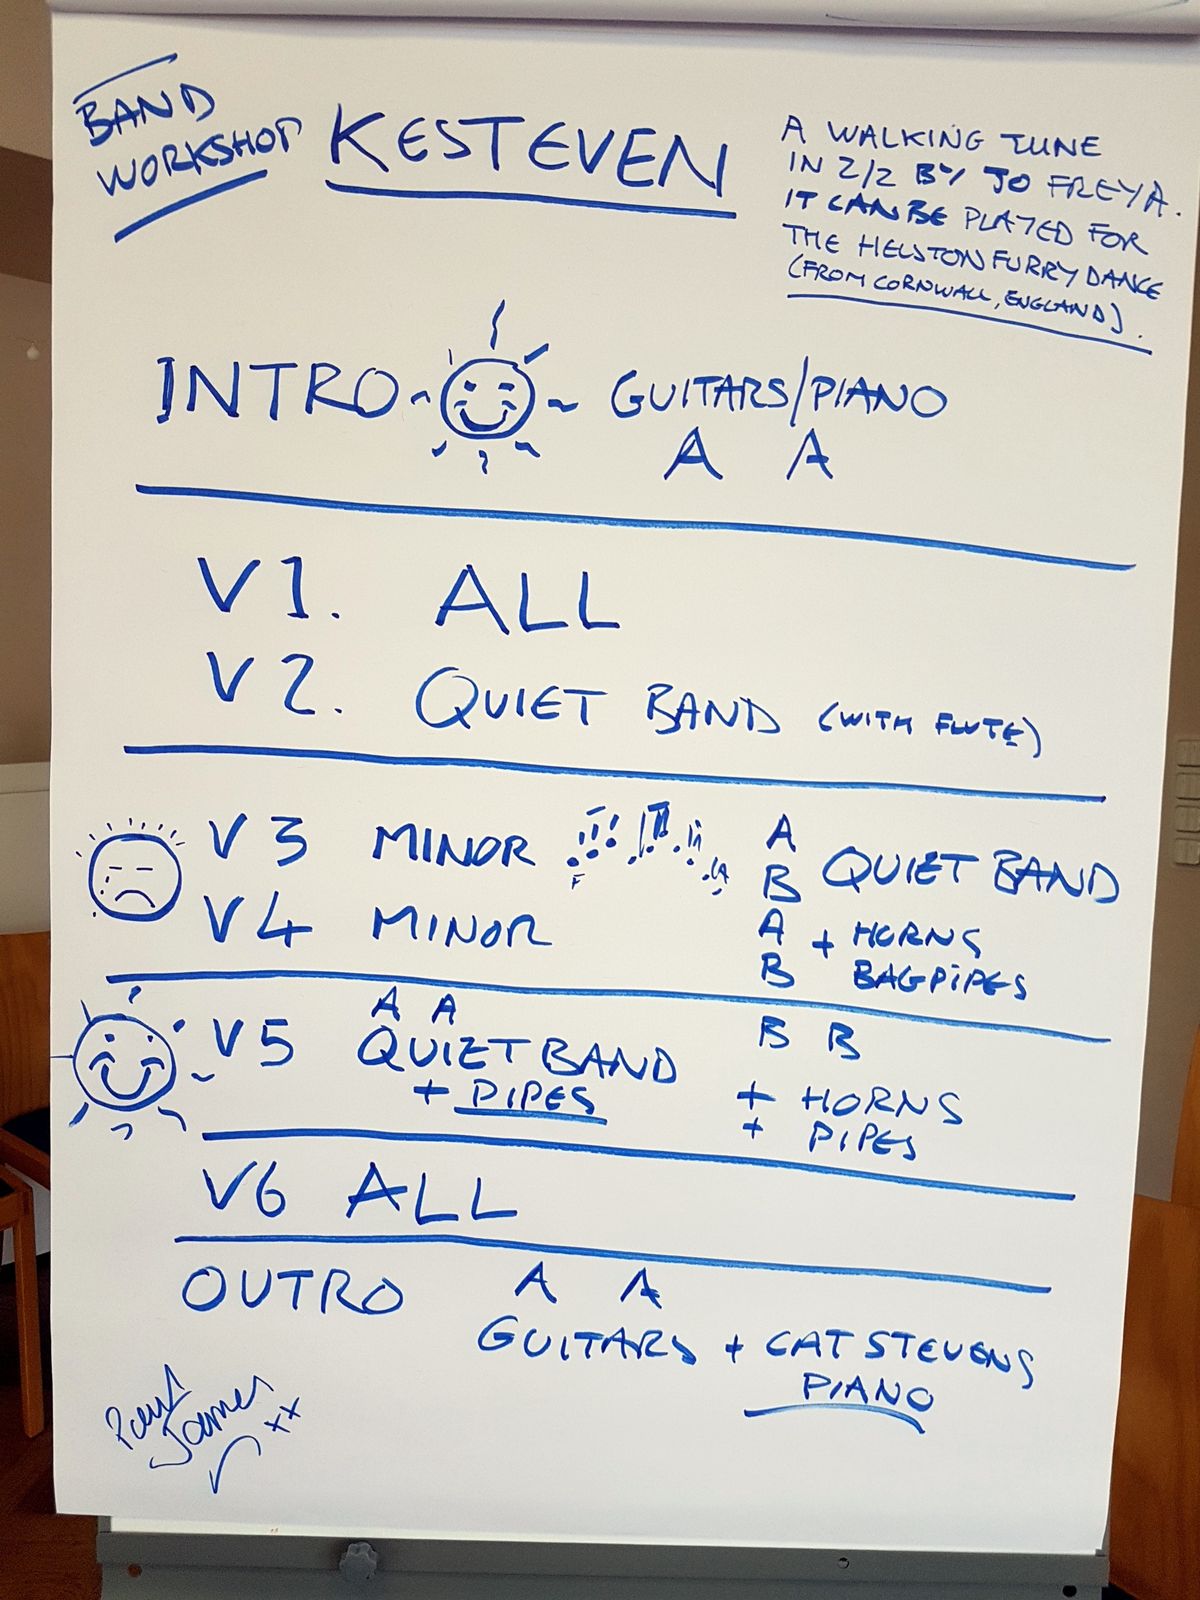 BAND
WORKSHOP
KESTEVEN
A WALKING TUNE
IN 2/2 BY JO FREYA.
IT CAN BE PLAYED FOR
THE HELSTON FURRY DANCE
(FROM CORNWALL, ENGLAND).
INTRO GUITARS/PIANO
A A
V1. ALL
V2. QUIET BAND (WITH FLUTE)
V3 MINOR
V4 MINOR
A
B QUIET BAND
A + HORNS
B BAGPIPES
A A
V5 QUIET BAND
+ PIPES
B B
+ HORNS
+ PIPES
V6 ALL
OUTRO A A
GUITARS + CAT STEVENS
PIANO
Paul
James
xx